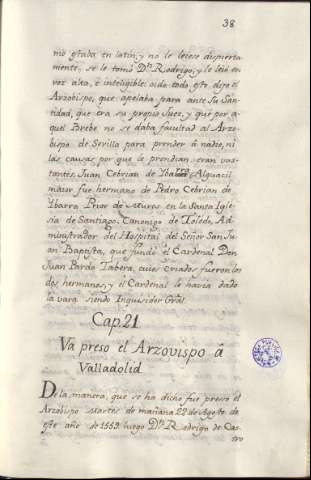 38
mo estaba en latin, y no le leiese dispierta-
mente, se le tomò Dⁿ Rodrigo, y le leiò en
voz alta, è inteligible: oido todo esto dijo el
Arzobispo, que apelaba para ante Su San-
tidad, que era su propio Juez, y que por a-
quel Brebe no se daba facultad al Arzo-
bispo de Sevilla para prender â nadie, ni
las causas por que le prendian eran vas-
tantes. Juan Cebrian de Ybarra Alguacil
maior fue hermano de Pedro Cebrian de
Ybarra Prior de Muros en la Santa Igle-
sia de Santiago, Canonigo de Toledo, Ad-
ministrador del Hospital del Señor San Ju-
an Baptista, que fundò el Cardenal Don
Juan Pardo Tabera, cuios criados fueron los
dos hermanos, y el Cardenal le havia dado
la vara siendo Inquisidor Gral.
Cap. 21
Va preso el Arzovispo â
Valladolid
De la manera, que se ha dicho fue preso el
Arzobispo Martes de mañana 22 de Agosto de
este año de 1559. luego Dⁿ Rodrigo de Cas-
tro